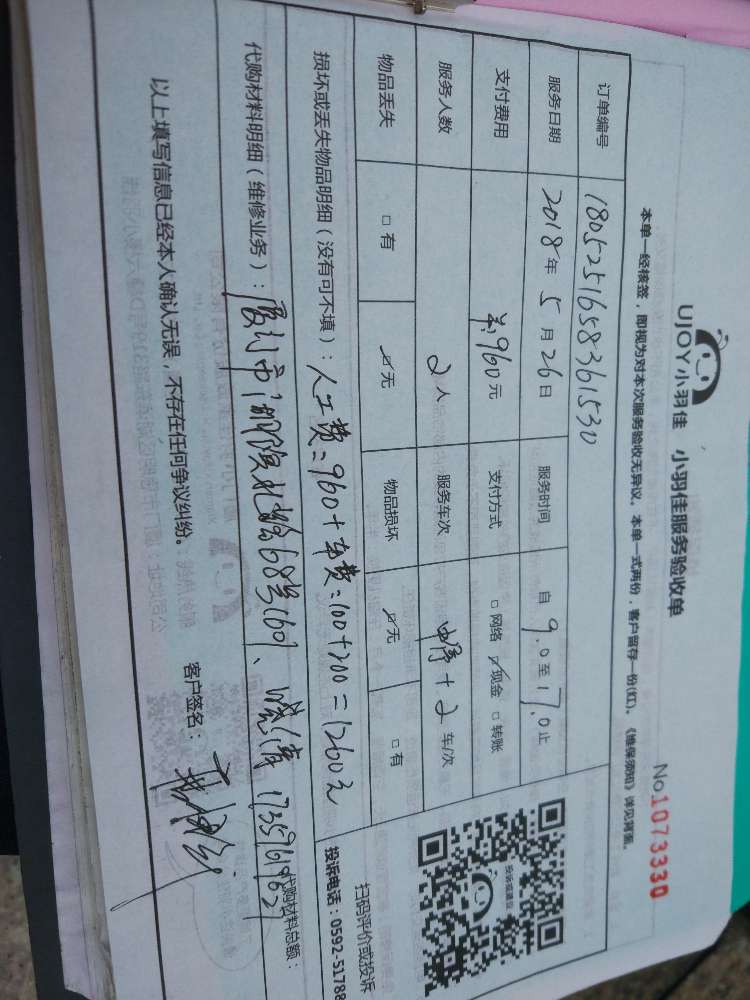 UJOY小羽佳 小羽佳服务验收单
No.1073330
本单一经核签，即视为对本次服务验收无异议。本单一式两份，客户留存一份(红)。《维保须知》详见背面。
订单编号 180525165836 1530
服务日期 2018年5月26日 服务时间 自9.0至17.0止
支付费用 ¥960元 支付方式 □网络 ☑现金 □转账
服务人数 2人 服务车次 +2车/次
物品丢失 □有 ☑无 物品损坏 ☑无 □有
损坏或丢失物品明细（没有可不填）：人工费=960+车费=100+200=1260元
代购材料明细（维修业务）：厦门市 68号 1735961962
代购材料总额：
以上填写信息已经本人确认无误，不存在任何争议纠纷。 客户签名：
投诉或建议
扫码评价或投诉
投诉电话：0592-51788